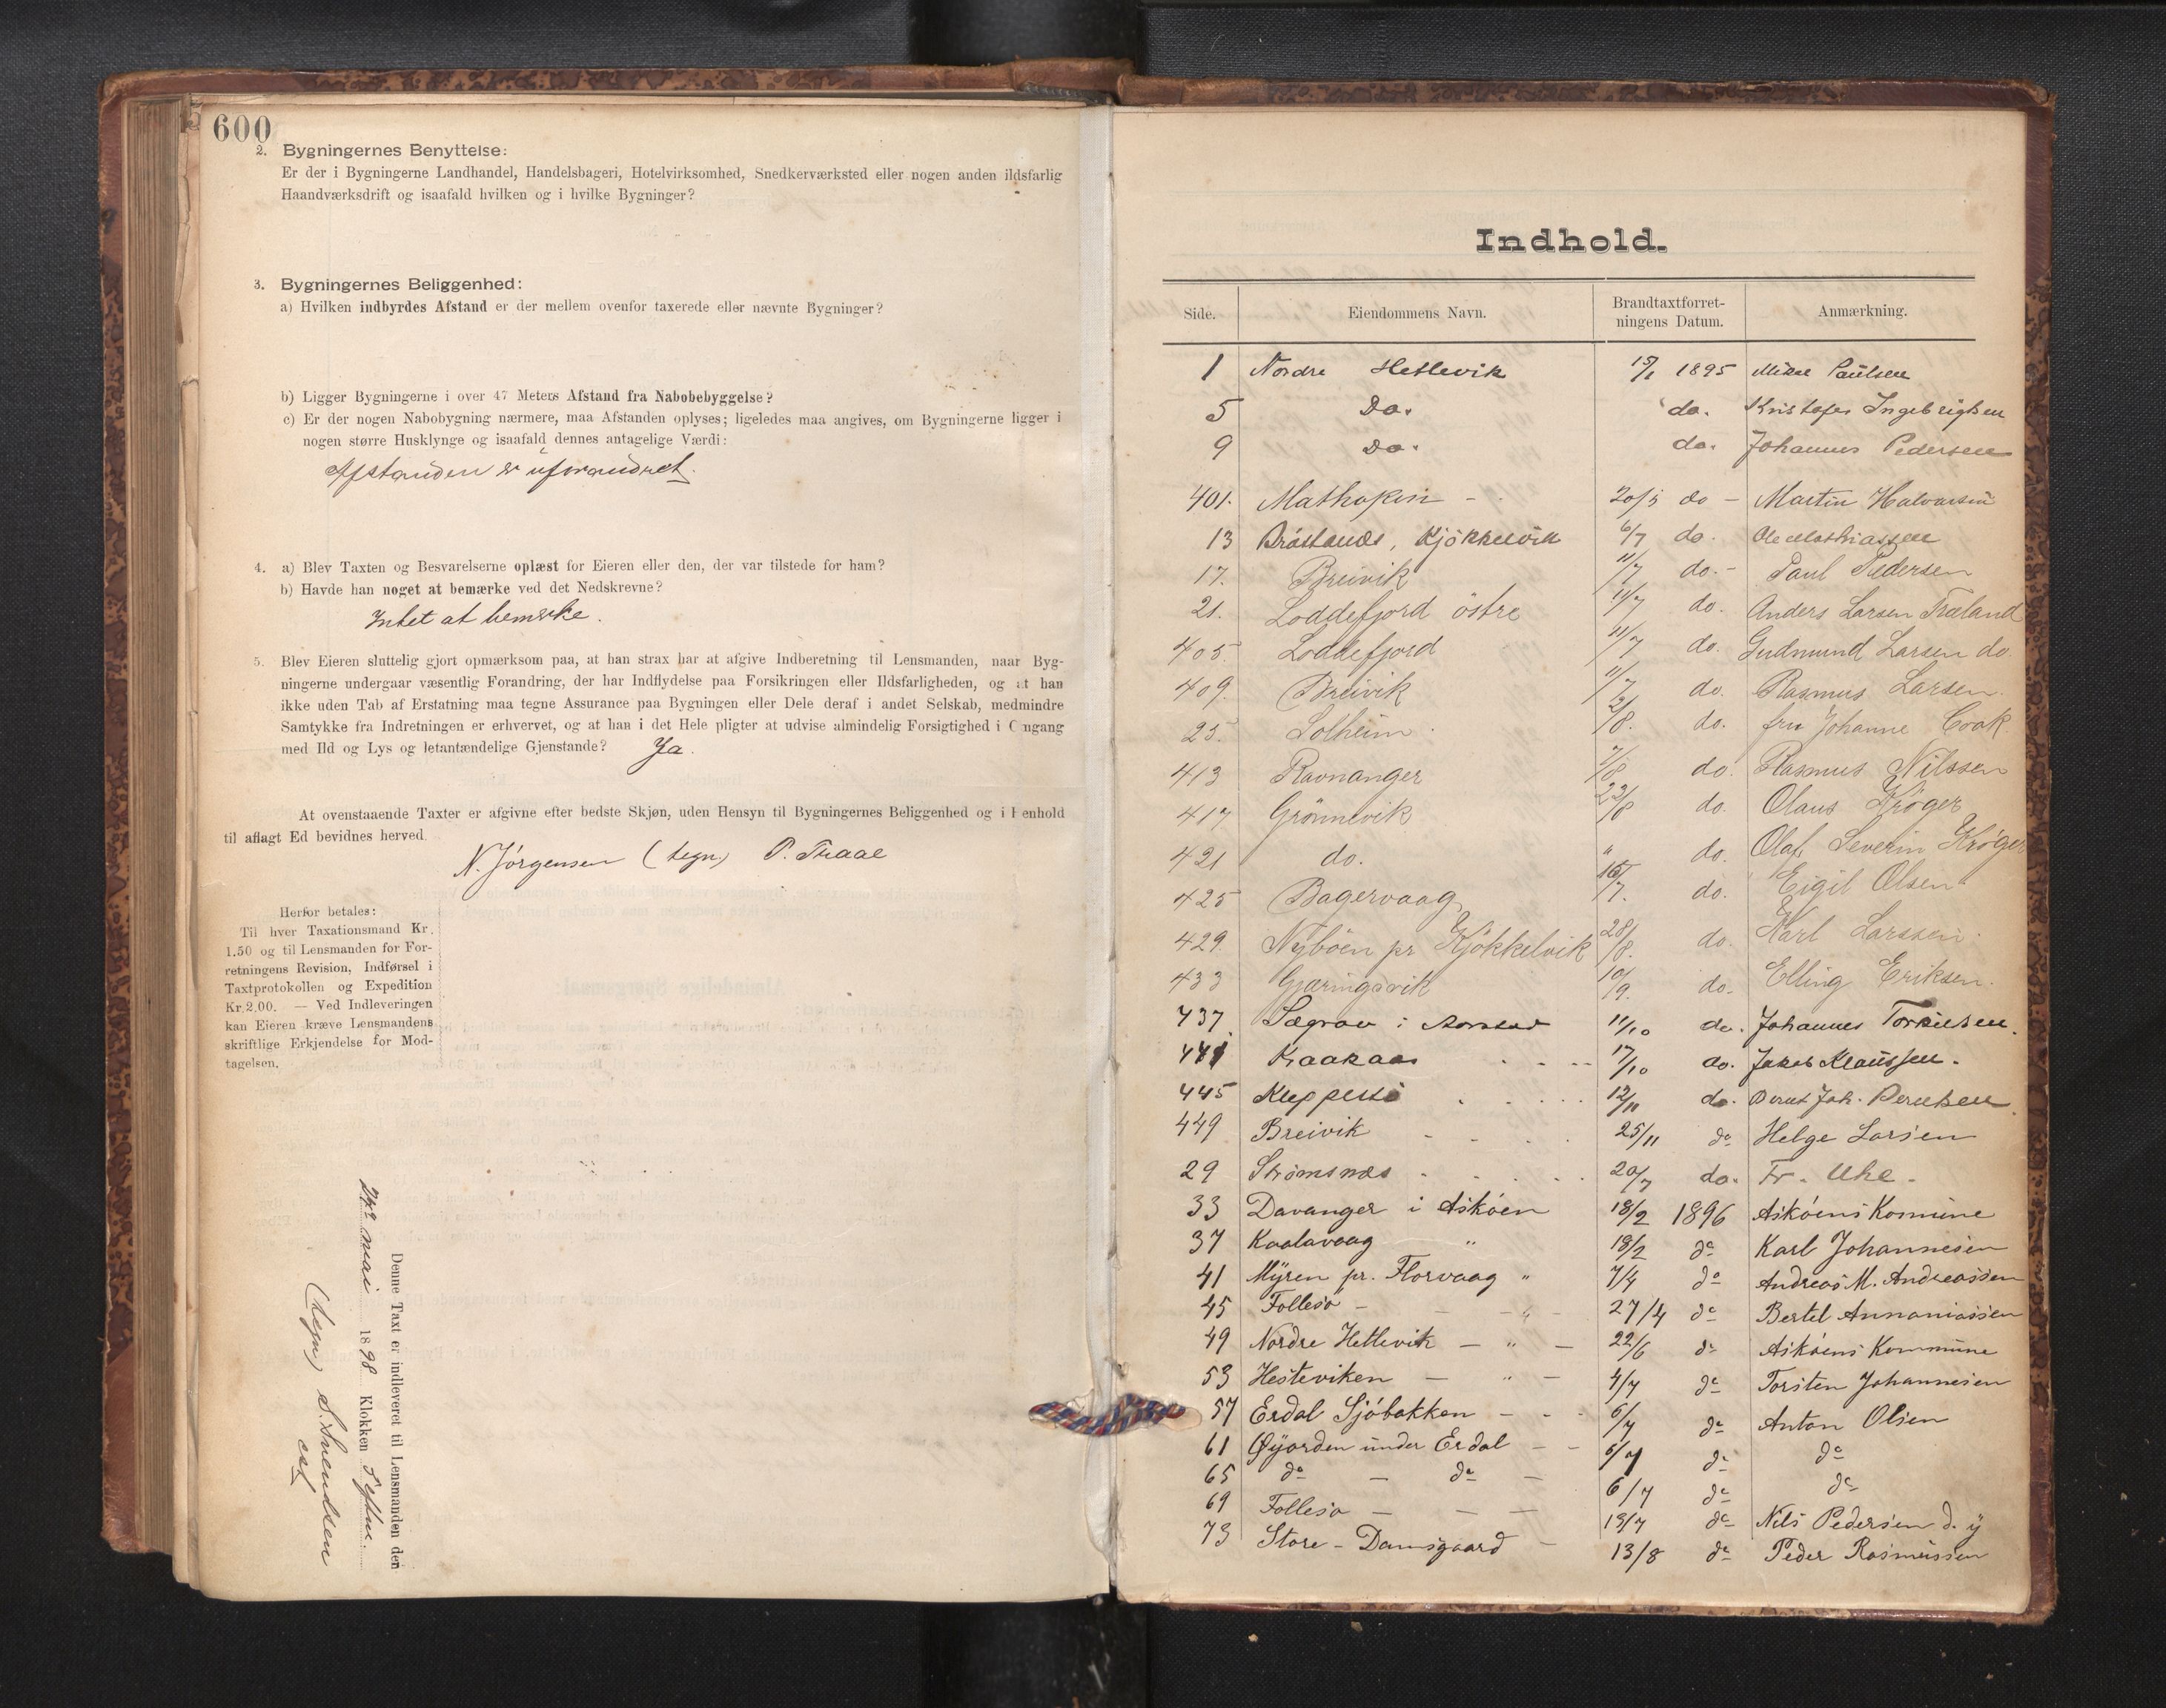 600
2. Bygningernes Benyttelse:
Er der i Bygningerne Landhandel, Handelsbageri, Hotelvirksomhed, Snedkerværksted eller nogen anden ildsfarlig
Haandværksdrift og isaafald hvilken og i hvilke Bygninger?
3. Bygningernes Beliggenhed:
a) Hvilken indbyrdes Afstand er der mellem ovenfor taxerede eller nævnte Bygninger?
b) Ligger Bygningerne i over 47 Meters Afstand fra Nabobebyggelse?
c) Er der nogen Nabobygning nærmere, maa Afstanden oplyses; ligeledes maa angives, om Bygningerne ligger i
nogen større Husklynge og isaafald dennes antagelige Værdi:
Afstanden er uforandret.
4. a) Blev Taxten og Besvarelserne oplæst for Eieren eller den, der var tilstede for ham?
b) Havde han noget at bemærke ved det Nedskrevne?
Intet at bemerke.
5. Blev Eieren sluttelig gjort opmærksom paa, at han strax har at afgive Indberetning til Lensmanden, naar Byg-
ningerne undergaar væsentlig Forandring, der har Indflydelse paa Forsikringen eller Ildsfarligheden, og at han
ikke uden Tab af Erstatning maa tegne Assurance paa Bygningen eller Dele deraf i andet Selskab, medmindre
Samtykke fra Indretningen er erhvervet, og at han i det Hele pligter at udvise almindelig Forsigtighed i Omgang
med Ild og Lys og letantændelige Gjenstande? Ja.
At ovenstaaende Taxter er afgivne efter bedste Skjøn, uden Hensyn til Bygningernes Beliggenhed og i Henhold
til aflagt Ed bevidnes herved.
N. Jørgensen (tegn) P. Traae
Herfor betales:
Til hver Taxationsmand Kr.
1.50 og til Lensmanden for For-
retningens Revision, Indførsel i
Taxtprotokollen og Expedition
Kr. 2.00. — Ved Indleveringen
kan Eieren kræve Lensmandens
skriftlige Erkjendelse for Mod-
tagelsen.
Denne Taxt er indleveret til Lensmanden den
24de mai 1898 Klokken 5 eftm.
(tegn) S. Svendsen
Indhold.
Side. Eiendommens Navn. Brandtaxtforret-ningens Datum. Anmærkning.
1 Nordre Hetlevik 15/1 1895 Mikal Paulsen
5 Do. do. Kristofer Ingebrigtsen
9 Do. do. Johannes Pedersen
401. Mathopen - 20/5 do - Martin Halvorsen
13 Bråstands, Kjökkelvik 6/7 do. Ole Mathiassen
17. Breivik 11/7 do. - Paul Pedersen
21. Loddefjord östre 11/7 do. Anders Larsen Træland
405. Loddefjord 11/7 do. Gudmund Larsen do.
409. Breivik 11/7 do. Rasmus Larsen.
25. Solheim 2/8. do. fru Johanne Cook.
413 Ravnanger 7/8 do. Rasmus Nilssen
417 Grönnevik 23/8 do. Olaus Krøger
421 do. " do. Olaf Severin Krøger
425 Bagervaag 16/7. do. Eigil Olsen
429. Nyböen pr Kjökkelvik 28/8. do. Karl Larssen.
433 Gjæringsvik 10/9. do. Elling Eriksen.
437. Sægrov i Aarstad 11/10 do. Johannes Torkilsen.
441 Kraakaas 17/10 do. Jakob Klaussen.
445 Kleppestö 12/11 do. Bernt Joh. Berntsen.
449 Breivik 25/11 do Helge Larsen
29 Strømsnæs 20/7 do. Fr. Uhe.
33 Davanger i Askøen 18/2 1896 Askøens Komune
37 Kaalavaag " 18/2 do Karl Johannesen
41 Myren pr. Florvaag " 7/4 do Andreas M. Andreassen
45 Follesø - " 27/4 do Bertel Annaniassen
49 Nordre Hetlevik — " — 22/6 do Askøens Kommune
53 Hesteviken — " — 4/7 do Torsten Johannesen
57 Erdal Sjöbakken - - - 6/7 do Anton Olsen
61 Øyjorden under Erdal - - 6/7 do do
65 do - do - 6/7 do do
69 Follesø - - - 13/7 do Nils Pedersen d. y
73 Store - Damsgaard - 13/8 do Peder Rasmussen